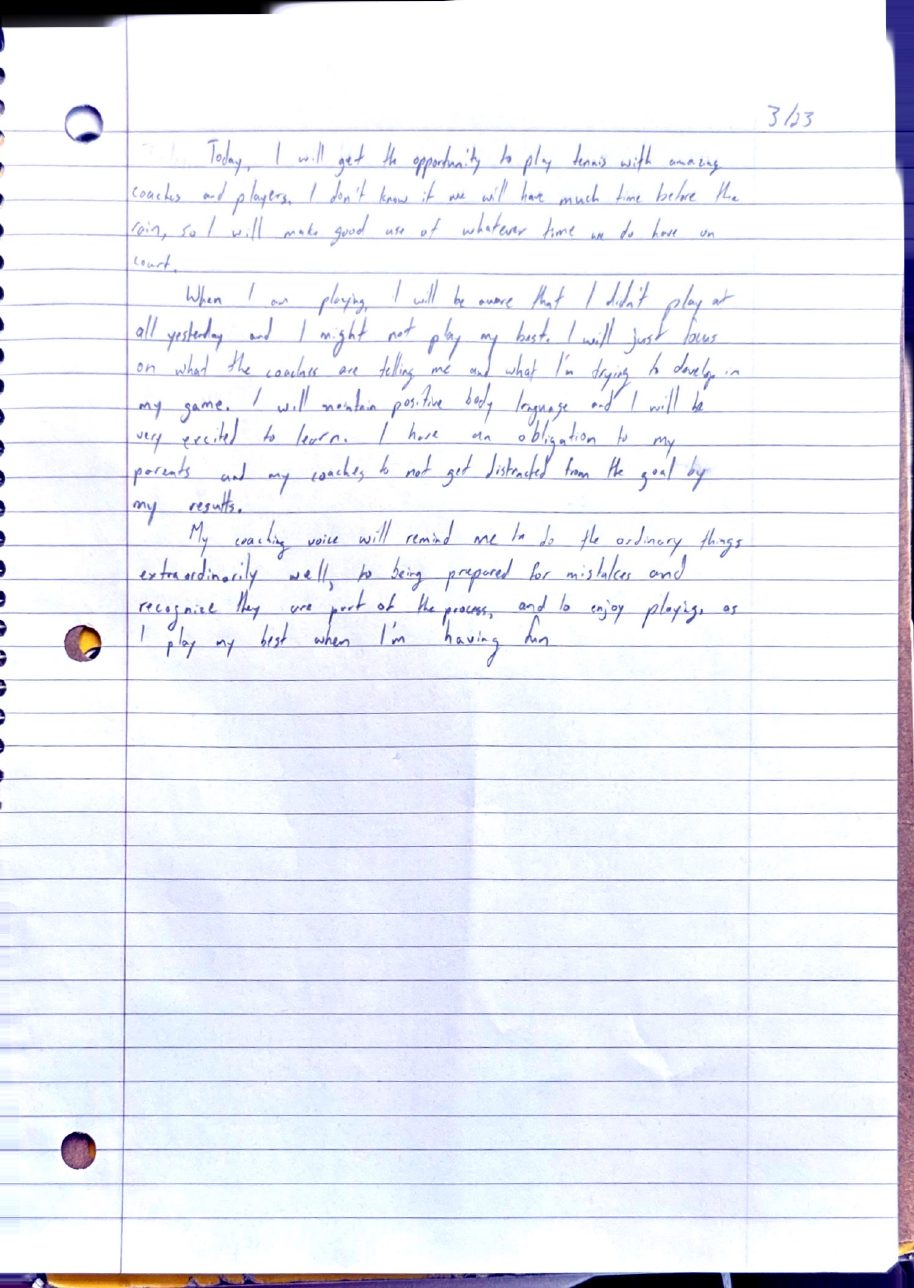 3/23
Today, I will get the opportunity to play tennis with amazing
coaches and players. I don't know if we will have much time before the
rain, so I will make good use of whatever time we do have on
court.
When I am playing, I will be aware that I didn't play at
all yesterday and I might not play my best. I will just focus
on what the coaches are telling me and what I'm trying to develop in
my game. I will maintain positive body language and I will be
very excited to learn. I have an obligation to my
parents and my coaches to not get distracted from the goal by
my results.
My coaching voice will remind me to do the ordinary things
extraordinarily well, to being prepared for mistakes and
recognize they are part of the process, and to enjoy playing, as
I play my best when I'm having fun